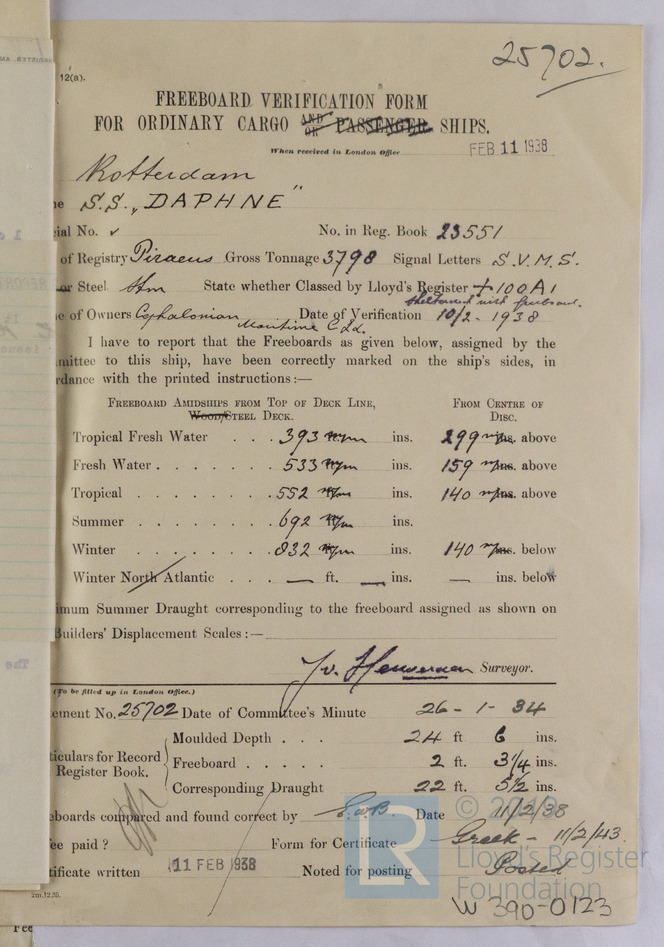 25702.
12(a).
FREEBOARD VERIFICATION FORM
FOR ORDINARY CARGO AND OR PASSENGER SHIPS.
When received in London Office FEB 11 1938
Rotterdam
S.S. „DAPHNE"
ial No. No. in Reg. Book 23551
of Registry Piraeus Gross Tonnage 3798 Signal Letters S.V.M.S.
or Steel Stm State whether Classed by Lloyd's Register +100A1
with freeboard.
e of Owners Cephalonian Maritime C Ld. Date of Verification 10/2 - 1938
I have to report that the Freeboards as given below, assigned by the
mittee to this ship, have been correctly marked on the ship's sides, in
rdance with the printed instructions:—
FREEBOARD AMIDSHIPS FROM TOP OF DECK LINE, FROM CENTRE OF
WOOD/STEEL DECK. DISC.
Tropical Fresh Water . . . 393 m/m ins. 299 m/m ins. above
Fresh Water . . . . . . . 533 m/m ins. 159 m/m ins. above
Tropical . . . . . . . . 552 m/m ins. 140 m/m ins. above
Summer . . . . . . . . 692 m/m ins.
Winter . . . . . . . 832 m/m ins. 140 m/m ins. below
Winter North Atlantic . . . — ft. — ins. — ins. below
imum Summer Draught corresponding to the freeboard assigned as shown on
Builders' Displacement Scales:—
Surveyor.
(To be filled up in London Office.)
ement No. 25702 Date of Committee's Minute 26 - 1 - 34
Moulded Depth . . . 24 ft 6 ins.
ticulars for Record
Freeboard . . . . . 2 ft. 3 1/4 ins.
Register Book.
Corresponding Draught 22 ft. 5 1/2 ins.
eboards compared and found correct by E.W.B. Date 11/2/38
ee paid ? Form for Certificate Greek - 11/2/43.
tificate written 11 FEB 1938 Noted for posting Posted
2m,12,35.
W 390-0123
Lloyd's Register
Foundation
LR